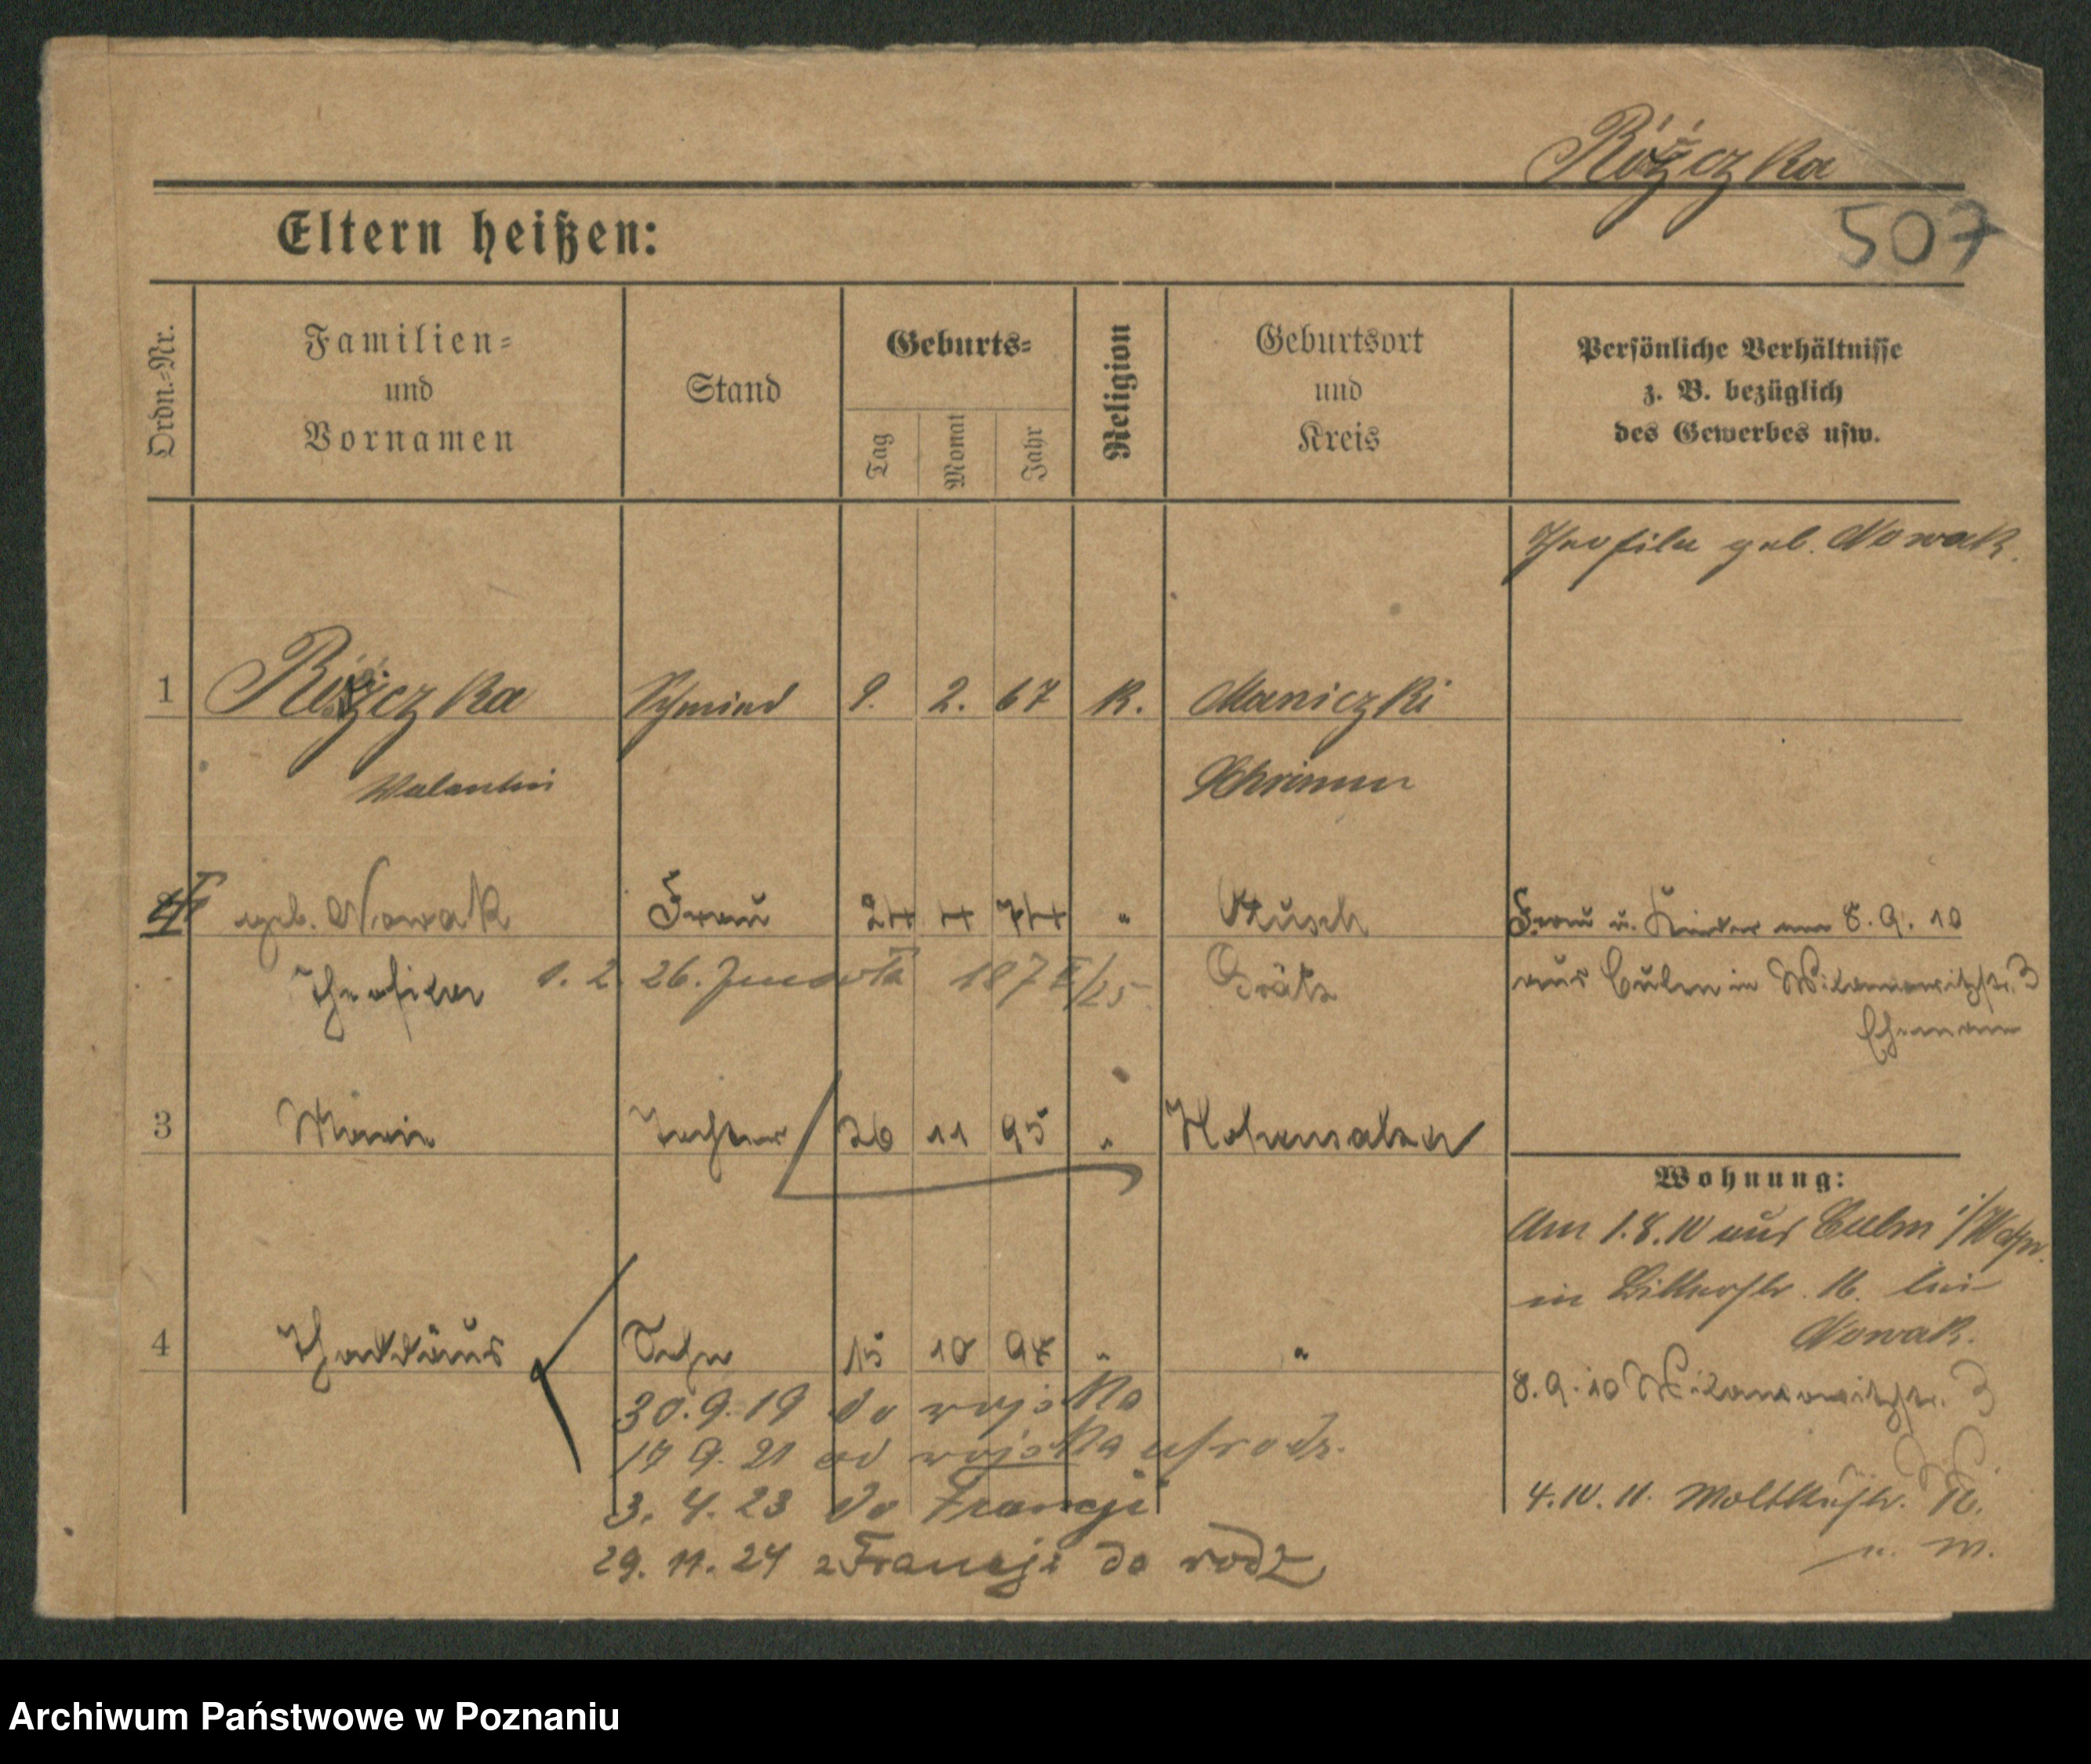 Różczka
507
Eltern heißen:
Ordn.-Nr.
Familien-
und
Vornamen
Stand
Geburts-
Tag
Monat
Jahr
Religion
Geburtsort
und
Kreis
Persönliche Verhältnisse
z. B. bezüglich
des Gewerbes usw.
Theofila geb. Nowak.
1 Różczka Schmied 9. 2. 67 K. Maniczki
Valentin Schrimm
geb. Nowak Frau 24 4 74 " Rusch
Theofila 1. 2. 26. 187 /25 Grätz
Frau u. Kinder am 8.9.10
aus Culm in Wilamowitzstr. 3
Ehemann
3 Maria Tochter 26 11 95 " Hohensalza
4 Thaddäus Sohn 15 10 97 " "
30.9.19 do wojska
17 9. 21 od wojska
3. 4. 23 do Francji
29. 11. 24 z Francji do rodz
Wohnung:
Am 1.8.10 aus Culm i/Wstpr.
in Bitterstr. 16. bei
Nowak.
8.9.10 Wilamowitzstr. 3
4.10.11. Moltkestr. 10.
u. m.
Archiwum Państwowe w Poznaniu